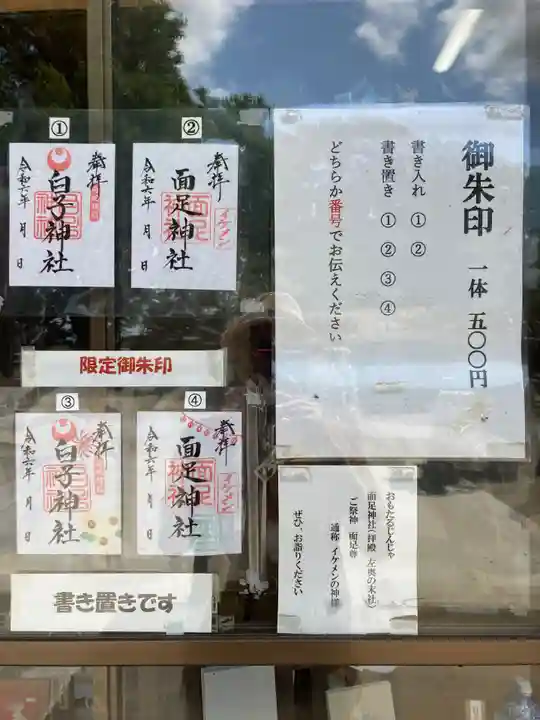 御朱印 一体 五〇〇円
書き入れ ① ②
書き置き ① ② ③ ④
どちらか番号でお伝えください
①
奉拝
白子神社
令和六年 月 日
②
奉拝
面足神社
イケメン
令和六年 月 日
限定御朱印
③
奉拝
白子神社
令和六年 月 日
④
奉拝
面足神社
イケメン
令和六年 月 日
書き置きです
おもたるじんじゃ
面足神社(拝殿 左奥の末社)
ご祭神 面足尊
通称 イケメンの神様
ぜひ、お詣りください